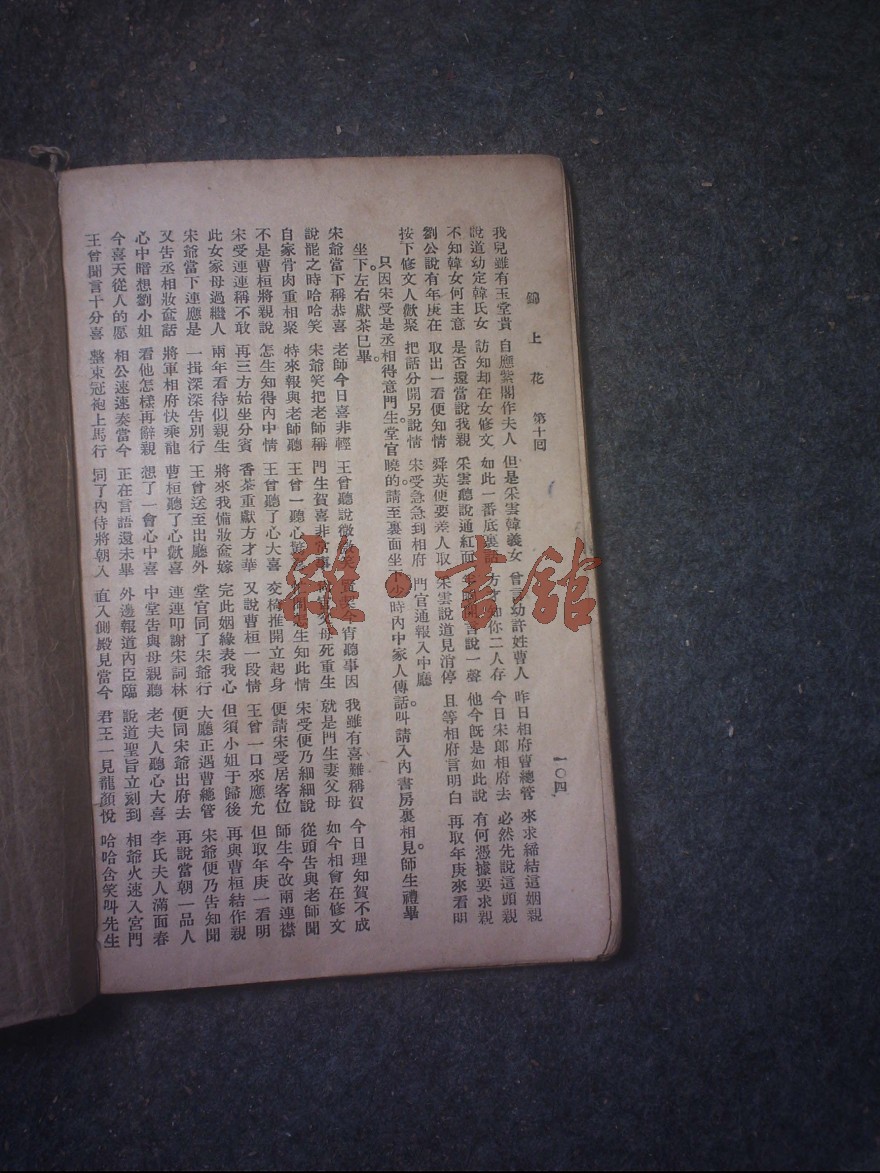 錦上花 第十回 一〇四
我兒雖有玉堂貴 自應紫閣作夫人 但是采雲韓義女 曾言幼許姓曹人 昨日相府曹總管 來求締結這姻親
說道幼定韓氏女 訪知却在女修文 如此一番底裏話 方才知你二人存 今日宋郎相府去 必然先說這頭親
不知韓女何主意 是否還當說我親 采雲聽說通紅面 言說一聲 他今既是如此說 有何憑據要求親
劉公說有年庚在 取出一看便知情 舜英便要差人取 采雲說道見消停 且等相府言明白 再取年庚來看明
按下修文人歡聚 把話分開另說情 宋受急急到相府 門官通報入中廳
只因宋受是丞相得意門生。堂官曉的。請至裏面坐下。少時內中家人傳話。叫請入內書房裏相見。師生禮畢
坐下。左右獻茶巳畢。
宋爺當下稱恭喜 老師今日喜非輕 王曾聽說微微笑 賢契今宵聽事因 我雖有喜難稱賀 今日理知賀不成
說罷之時哈哈笑 宋爺笑把老師稱 門生賀喜非常事 父母死重生 就是門生妻父母 如今相會在修文
自家骨肉重相聚 特來報與老師聽 王曾一聽心驚喜 生知此情 宋受便乃細細說 從頭告與老師聞
不是曹桓將親說 怎生知得內中情 王曾聽了心大喜 交椅推開立起身 便請宋受居客位 師生今改兩連襟
宋受連連稱不敢 再三方始坐分賓 香茶重獻方才華 又說曹桓一段情 王曾一口來應允 但取年庚一看明
此女家母過繼人 兩年看待似親生 將來我備妝奩嫁 完此姻緣表我心 但須小姐于歸後 再與曹桓結作親
宋爺當下連應是 一揖深深告別行 王曾送至出廳外 堂官同了宋爺行 大廳正遇曹總管 宋爺便乃告知聞
又告丞相妝奩話 將軍相府快乘龍 曹桓聽了心歡喜 連連叩謝宋詞林 便同宋爺出府去 再說當朝一品人
心中暗想劉小姐 看他怎樣再辭親 想了一會心中喜 中堂告與母親聽 老夫人聽心大喜 李氏夫人滿面春
今喜天從人的愿 相公速速奏當今 正在言語還未畢 外邊報道內臣臨 說道聖旨立刻到 相爺火速入宮門
王曾聞言十分喜 整束冠袍上馬行 同了內侍將朝入 直入側殿見當今 君王一見龍顏悅 哈哈含笑叫先生
雜·書館